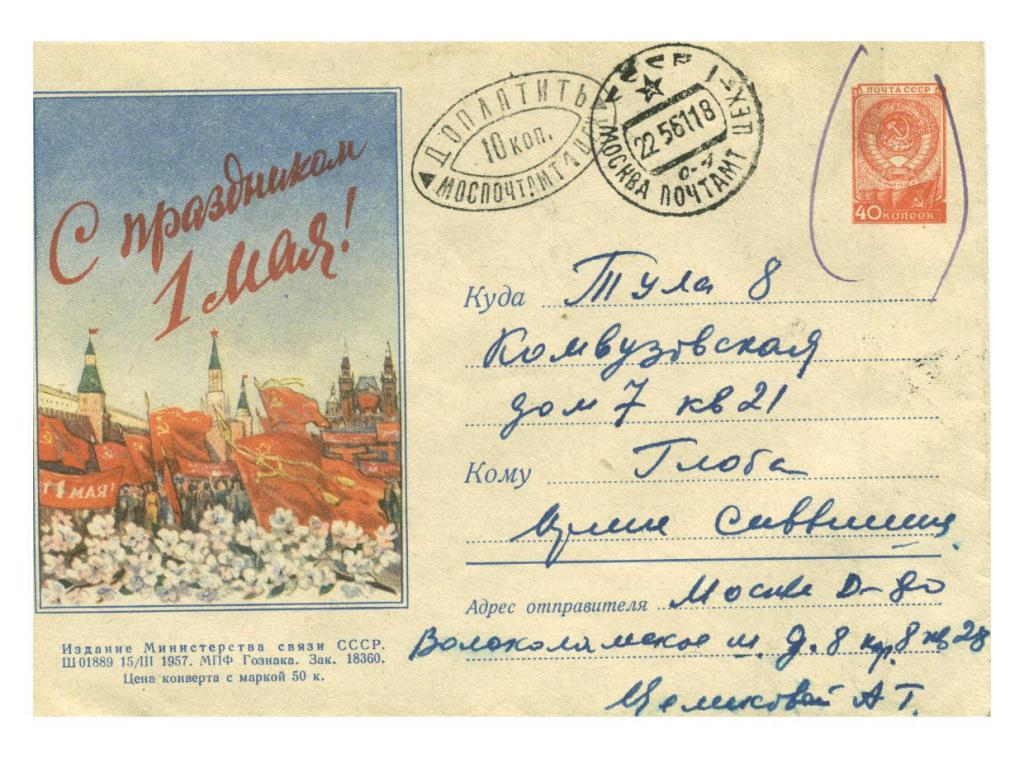 С праздником
1 Мая!
Т 1 МАЯ!
Издание Министерства связи СССР.
Ш 01889 15/III 1957. МПФ Гознака. Зак. 18360.
Цена конверта с маркой 50 к.
ДОПЛАТИТЬ
10 коп.
МОСПОЧТАМТ
22 5 61 18
МОСКВА ПОЧТАМТ
ПОЧТА СССР
40 КОПЕЕК
Куда Тула 8
Комвузовская
дом 7 кв 21
Кому Глоба
Адрес отправителя Москва Д-80
Волоколамское ш. д. 8 кор. 8 кв 28
А Т.